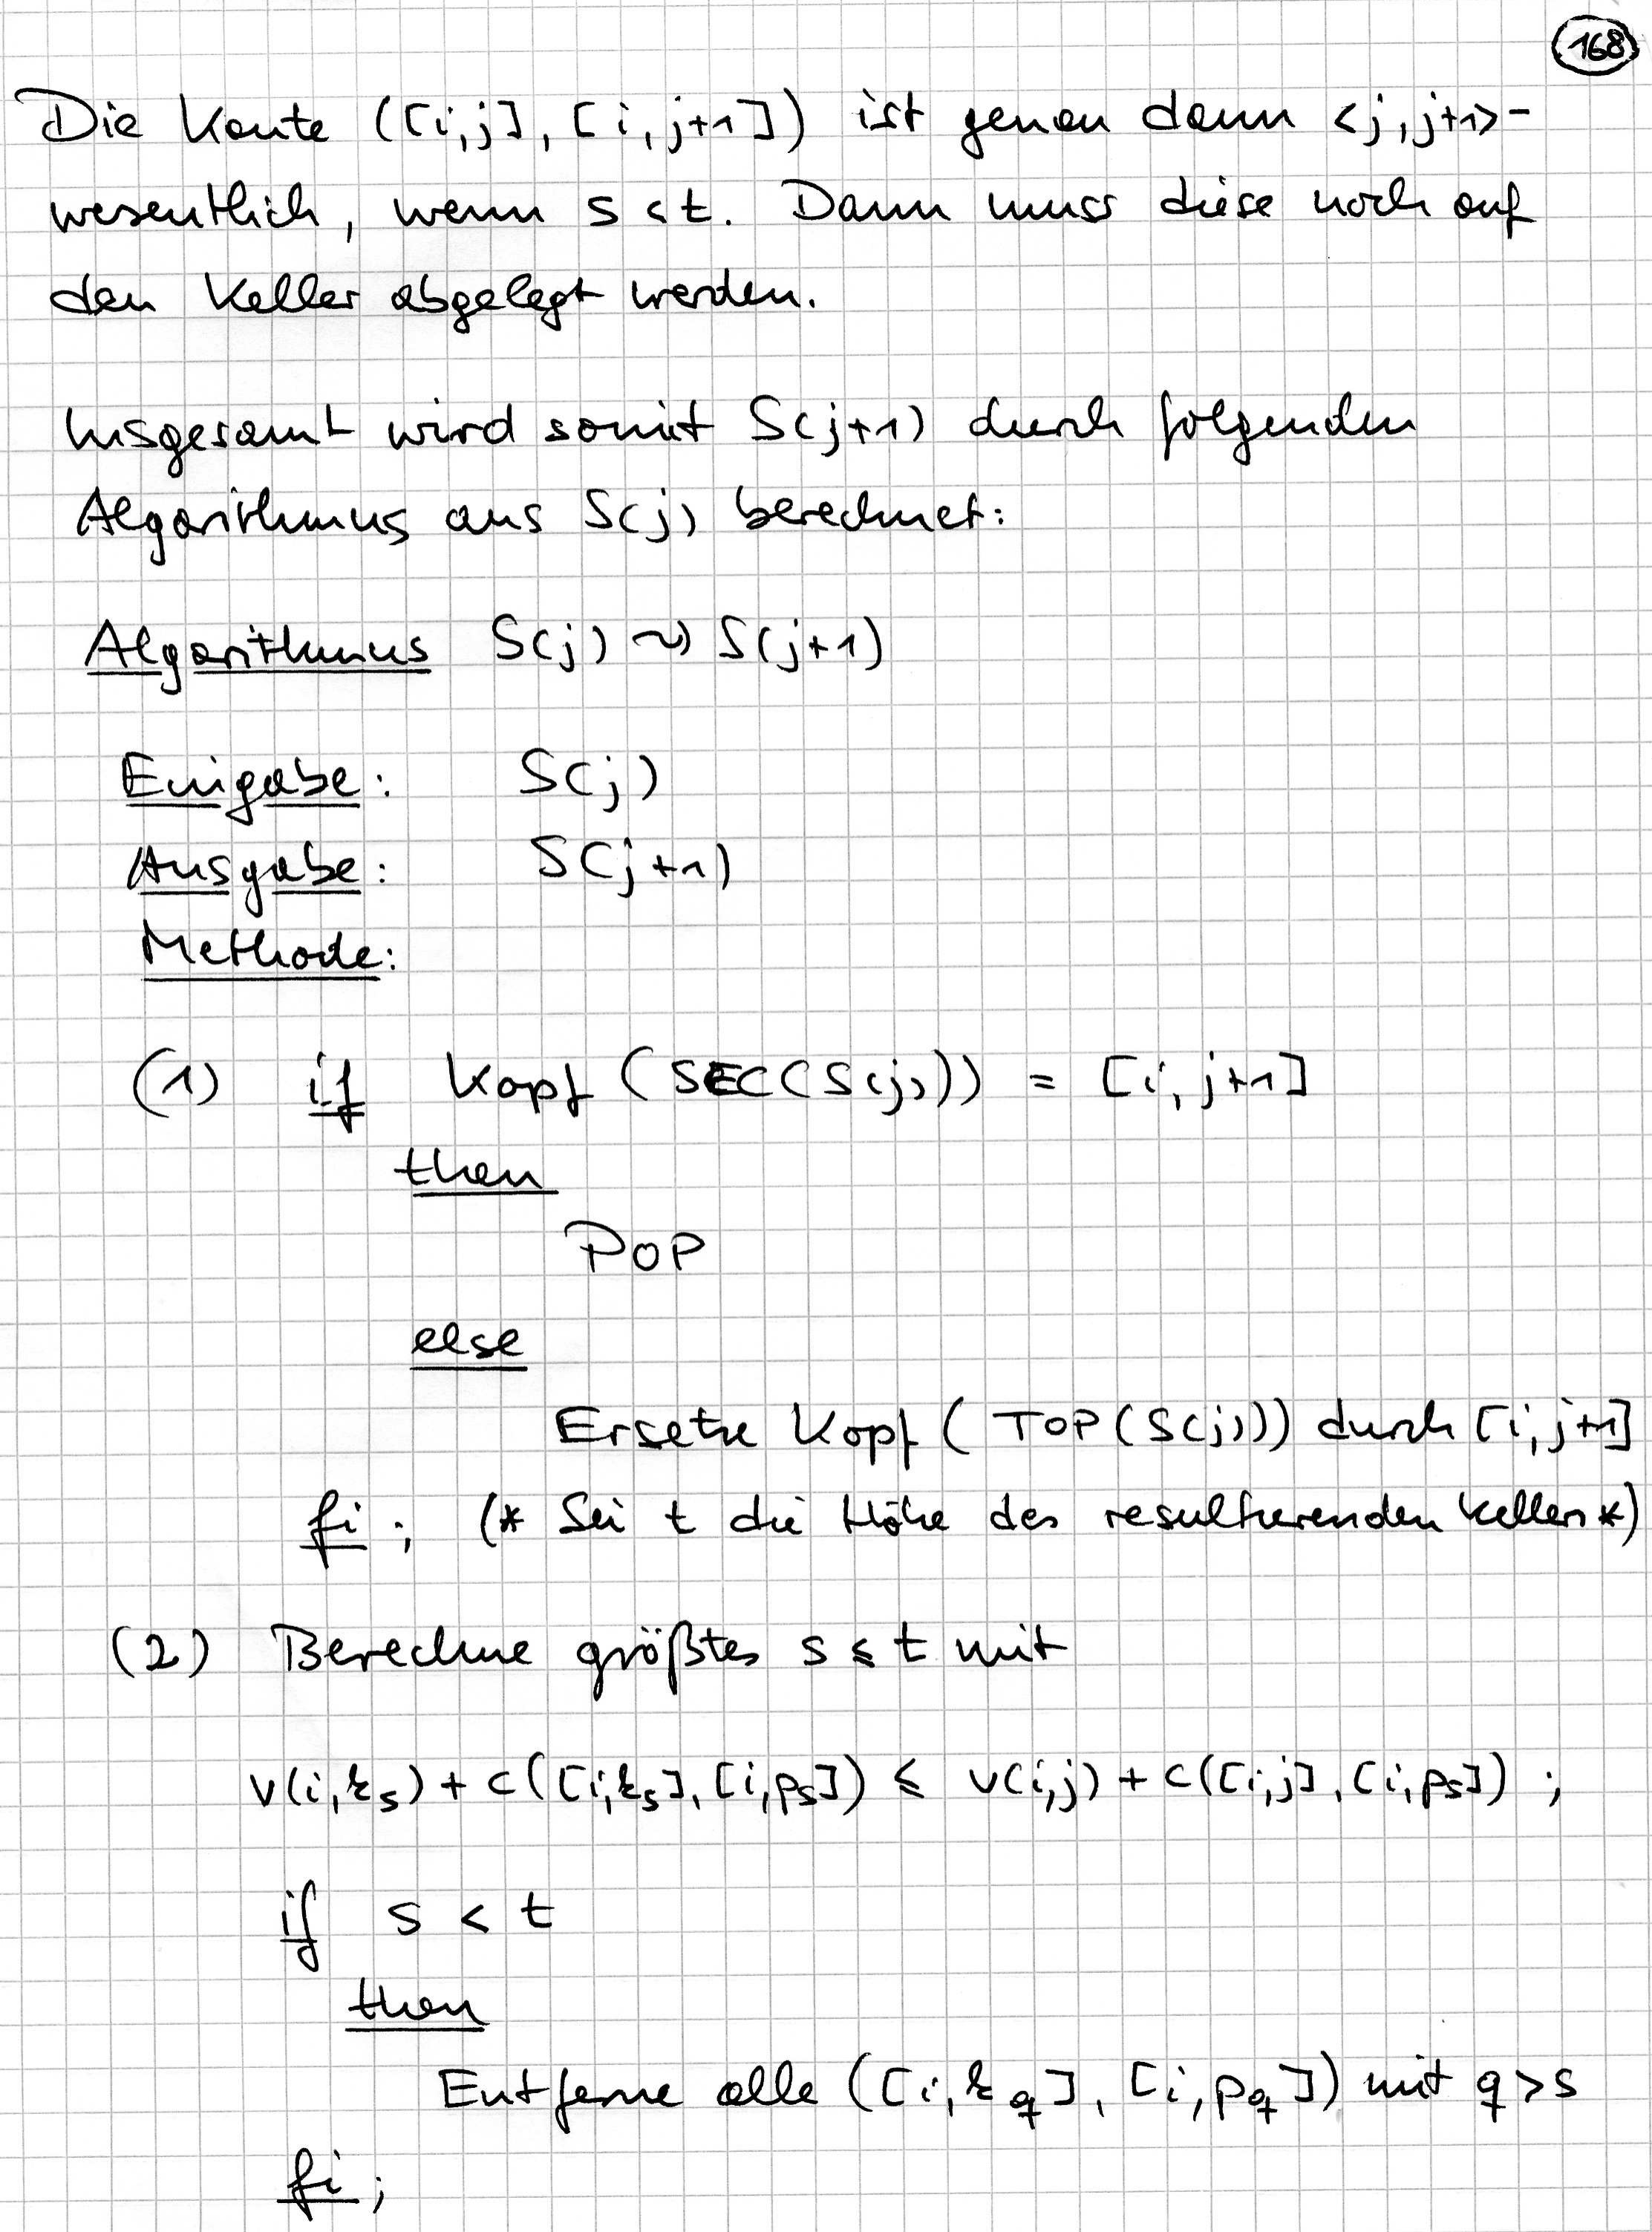 168
Die Kante ([i,j], [i,j+1]) ist genau dann <j,j+1>-
wesentlich, wenn s < t. Dann muss diese noch auf
den Keller abgelegt werden.
Insgesamt wird somit S(j+1) durch folgenden
Algorithmus aus S(j) berechnet:
Algorithmus S(j) ⇝ S(j+1)
Eingabe: S(j)
Ausgabe: S(j+1)
Methode:
(1) if Kopf (SEC(S(j))) = [i, j+1]
then
POP
else
Ersetze Kopf ( TOP (S(j))) durch [i, j+1]
fi; (* Sei t die Höhe des resultierenden Kellers *)
(2) Berechne größtes s ≤ t mit
v(i,k_s) + c([i,k_s], [i,p_s]) ≤ v(i,j) + c([i,j], [i,p_s]) ;
if s < t
then
Entferne alle ([i,k_q], [i,p_q]) mit q > s
fi;